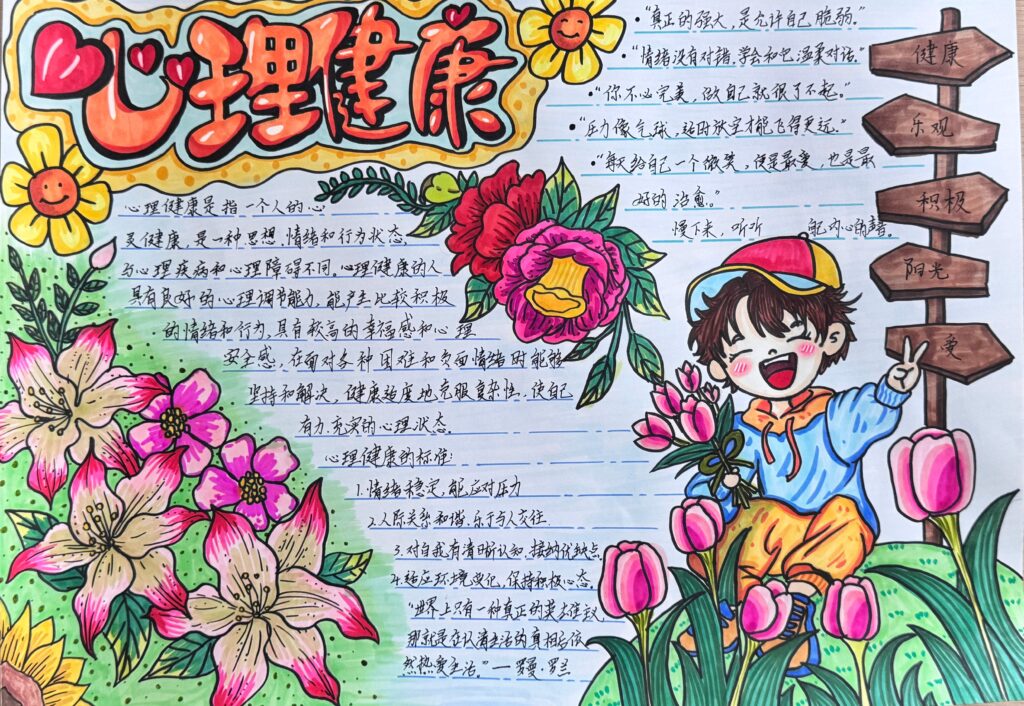 心理健康
心理健康是指一个人的心
灵健康，是一种思想、情绪和行为状态，
与心理疾病和心理障碍不同。心理健康的人
具有良好的心理调节能力，能产生比较积极
的情绪和行为，具有较高的幸福感和心理
安全感，在面对各种困难和负面情绪时能够
坚持和解决，健康适度地克服复杂性，使自己
有力、充实的心理状态。
心理健康的标准：
1.情绪稳定，能应对压力
2.人际关系和谐，乐于与人交往.
3.对自我有清晰认知，接纳优缺点
4.适应环境变化，保持积极心态。
“世界上只有一种真正的英雄主义，
那就是在认清生活的真相后依
然热爱生活。”—罗曼·罗兰
•“真正的强大，是允许自己脆弱。”
•“情绪没有对错，学会和它温柔对话。”
•“你不必完美，做自己就很了不起。”
•“压力像气球，适时放空才能飞得更远。”
•“每天给自己一个微笑，便是最美，也是最
好的治愈。”
慢下来，听听 内心的声音。
健康
乐观
积极
阳光
爱